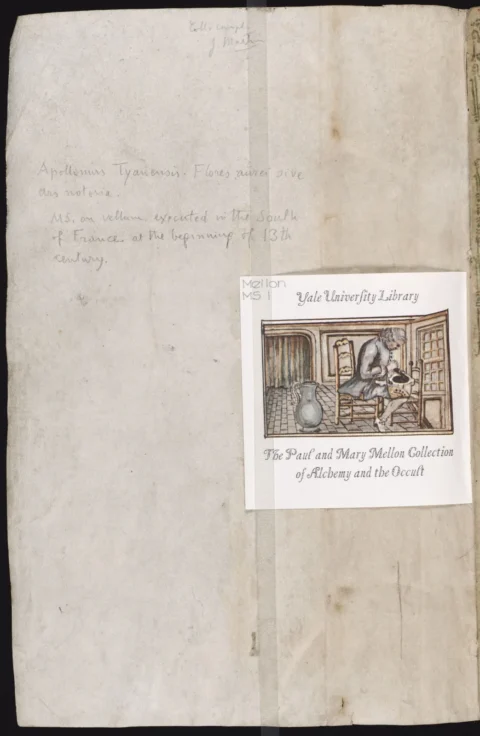 Apollonius Tyanensis. Flores aurei sive
ars notoria.
MS. on vellum executed in the South
of France at the beginning of 13th
century.
Mellon
MS 1
Yale University Library
The Paul and Mary Mellon Collection
of Alchemy and the Occult